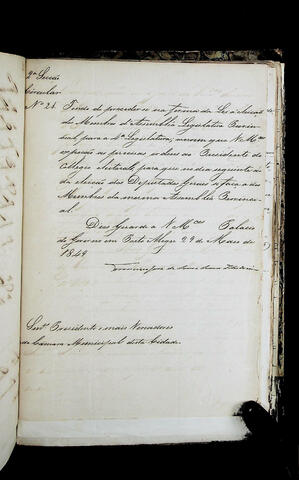 2ª Secção
Circular
Nº 21. Tendo de proceder-se na forma da Lei a eleição
de Membros d'Assemblea Legislativa Provin-
cial para a 4ª Legislatura, cumpre que V. Mces
expeção as precisas ordens ao Presidente do
collegio eleitoral para que no dia seguinte ao
da eleição dos Deputados Geraes se faça a dos
Membros da mesma Assemblea Provinci-
al.
Deos Guarde a V. Mces Palacio
do Governo em Porto Alegre 29 de Maio de
1849
Francisco José de Souza Soares d'Andréa
Senres Presidente e mais Vereadores
da Camara Municipal desta Cidade.